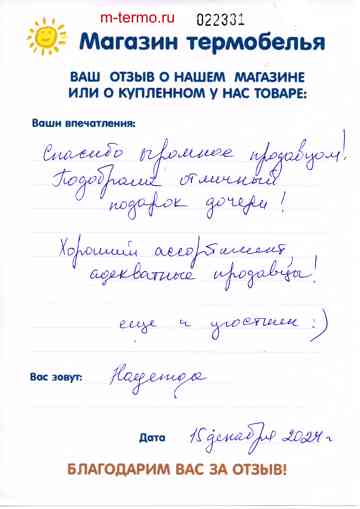 m-termo.ru 022331
Магазин термобелья
ВАШ ОТЗЫВ О НАШЕМ МАГАЗИНЕ
ИЛИ О КУПЛЕННОМ У НАС ТОВАРЕ:
Ваши впечатления:
Спасибо огромное продавцом!
Подобрали отличный
подарок дочери!
Хороший ассортимент,
адекватные продавцы!
еще и угостили :)
Вас зовут: Надежда
Дата 15 декабря 2024 г
БЛАГОДАРИМ ВАС ЗА ОТЗЫВ!